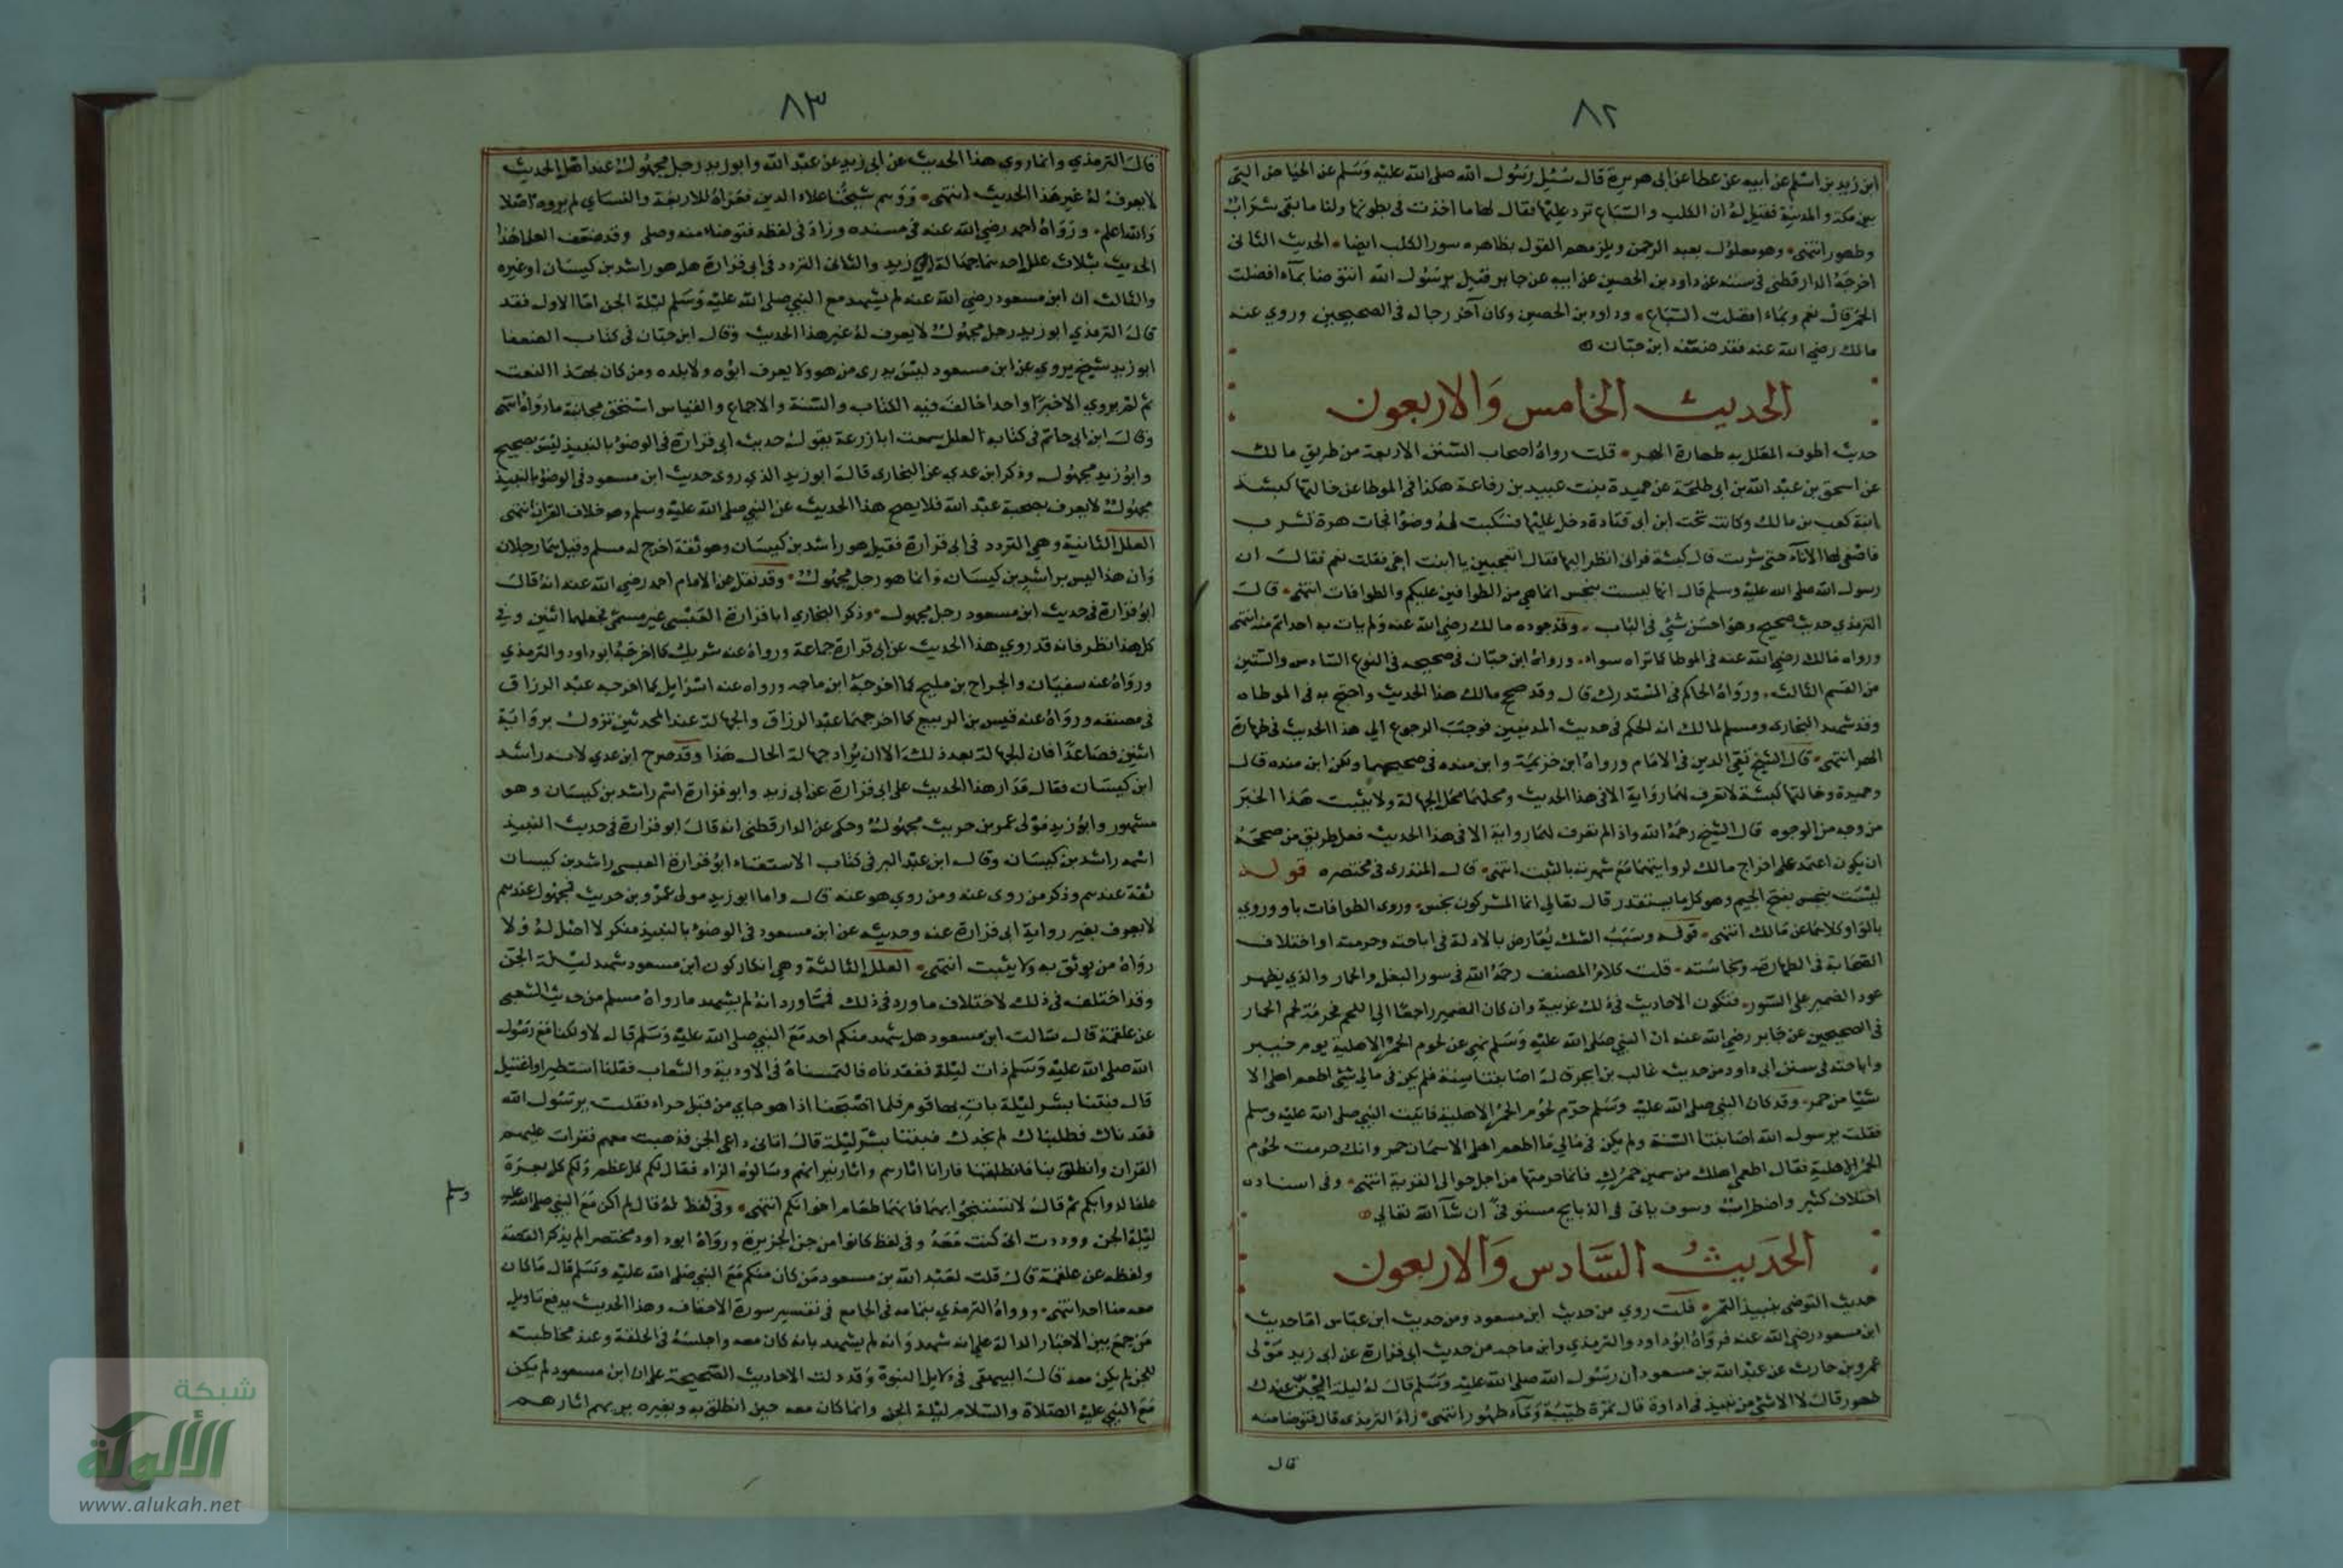 ٨٢
ابن زيد بن اسلم عن ابيه عن عطا عن ابى هريرة قال سئيل رسول الله صلى الله عليه وسلم عن الحياض التى
بين مكة والمدينة فقيل له ان الكلاب والسباع ترد عليها فقال لها ما اخذت فى بطونها ولنا ما بقى شراب
وطهور انتهى وهو معلول بعبد الرحمن ويلزمهم القول بظاهره سور الكلب ايضا الحديث الثانى
اخرجه الدارقطنى فى سننه عن داود بن الحصين عن ابيه عن جابر قيل يرسول الله انتوضا بماء افضلت
الحمر قال نعم وبماء افضلت السباع وداود بن الحصين وكان آخر رجاله فى الصحيحين وروي عنه
مالك رضي الله عنه فقد ضعفه ابن حبان
الحديث الخامس والاربعون
حديث الطوف المعلل به طهارة الهر قلت رواه اصحاب السنن الاربعة من طريق مالك
عن اسحق بن عبد الله بن ابى طلحة عن حميدة بنت عبيد بن رفاعة هكذا فى الموطا عن خالتها كبشة
ابنة كعب بن مالك وكانت تحت ابن ابى قتادة دخل عليها فسكبت له وضوا فجات هرة تشرب
فاصغى لها الاناء حتى شربت قال كبشة فرانى انظر اليها فقال اتعجبين يا ابنت اخى فقلت نعم فقال ان
رسول الله صلى الله عليه وسلم قال انها ليست بنجس انما هي من الطوافين عليكم والطوافات انتهى قال
الترمذي حديث صحيح وهو احسن شئ فى الباب وقد جوده مالك رضي الله عنه ولم يات به احد اتم منه انتهى
ورواه مالك رضي الله عنه فى الموطا كما تراه سواء ورواه ابن حبان فى صحيحه فى النوع السادس والستين
من القسم الثالث ورواه الحاكم فى المستدرك قال وقد صحح مالك هذا الحديث واحتج به فى الموطاه
وقد شهد البخارى ومسلم لمالك انه الحكم فى حديث المدنيين فوجب الرجوع الى هذا الحديث فى طهارة
الهر انتهى قال الشيخ تقى الدين فى الامام ورواه ابن خزيمة وابن منده فى صحيحهما ولكن ابن منده قال
وحميدة وخالتها كبشة لا تعرف لهما رواية الا فى هذا الحديث ومحلهما محل الجهالة ولا يثبت هذا الخبر
من وجه من الوجوه قال الشيخ رحمه الله واذ الم نعرف لهما رواية الا فى هذا الحديث فعل طريق من صححه
ان يكون اعتمد على اخراج مالك لروايتهما مع شهرته بالتثبت انتهى قال المنذرى فى مختصره قوله
ليست بنجس بفتح الجيم وهو كل ما يستقذر قال تعالى انما المشركون نجس وروى الطوافات باو وروي
بالواو كلاهما عن مالك انتهى قوله وسبب الشك تعارض بالادلة فى اباحته وحرمته او اختلاف
الصحابة فى الطهارته ونجاسته قلت كلام المصنف رحمه الله فى سور البغل والحمار والذى يظهر
عود الضمير على السور فتكون الاحاديث فى ذلك غريبة وان كان الضمير راجعا الى اللحم فحرمة لحم الحمار
فى الصحيحين عن جابر رضي الله عنه ان النبي صلى الله عليه وسلم نهى عن لحوم الحمر الاهلية يوم خيبر
واباحته فى سنن ابى داود من حديث غالب بن ابجر قال اصابتنا سنة فلم يكن فى مالى شئ اطعم اهلى الا
شيا من حمر وقد كان النبي صلى الله عليه وسلم حرم لحوم الحمر الاهلية فاتيت النبي صلى الله عليه وسلم
فقلت يرسول الله اصابتنا السنة ولم يكن فى مالى ما اطعم اهلى الا سمان حمر وانك حرمت لحوم
الحمر الاهلية فقال اطعم اهلك من سمين حمرك فانما حرمتها من اجل جوالى القرية انتهى وفى اسناده
اختلاف كثير واضطراب وسوف ياتى فى الذبايح مستوفى ان شآ الله تعالى
الحديث السادس والاربعون
حديث التوضى بنبيذ التمر قلت روي من حديث ابن مسعود ومن حديث ابن عباس اما حديث
ابن مسعود رضي الله عنه فرواه ابو داود والترمذي وابن ماجه من حديث ابى فزارة عن ابى زيد مولى
عمرو بن حارث عن عبد الله بن مسعود ان رسول الله صلى الله عليه وسلم قال له ليلة الجن عندك
طهور قال لا الا شئ من نبيذ فى اداوة قال تمرة طيبة وماء طهور انتهى زاد الترمذى قال فتوضا منه
قال
٨٣
قال الترمذي وانما روي هذا الحديث عن ابى زيد عن عبد الله وابو زيد رجل مجهول عند اهل الحديث
لا يعرف له غير هذا الحديث انتهى ووهم شيخنا علاء الدين فعزاه للاربعة والنساي لم يروه اصلا
والله اعلم ورواه احمد رضي الله عنه فى مسنده وزاد فى لفظه فتوضا منه وصلى وقد ضعف العلما هذا
الحديث بثلاث علل احدها جهالة ابي زيد والثانى التردد فى ابى فزارة هل هو راشد بن كيسان او غيره
والثالث ان ابن مسعود رضي الله عنه لم يشهد مع النبي صلى الله عليه وسلم ليلة الجن اما الاول فقد
قال الترمذي ابو زيد رجل مجهول لا يعرف له غير هذا الحديث وقال ابن حبان فى كتاب الضعفا
ابو زيد شيخ يروي عن ابن مسعود ليس يدرى من هو ولا يعرف ابوه ولا بلده ومن كان بهذا النعت
ثم لم يروي الا خبرا واحدا خالف فيه الكتاب والسنة والاجماع والقياس استحق مجانبة ما رواه انتهى
وقال ابن ابى حاتم فى كتاب العلل سمعت ابا زرعة يقول حديث ابى فزارة فى الوضو بالنبيذ ليس بصحيح
وابو زيد مجهول وذكر ابن عدي عن البخارى قال ابو زيد الذي روى حديث ابن مسعود فى الوضو بالنبيذ
مجهول لا يعرف بصحبة عبد الله فلا يصح هذا الحديث عن النبي صلى الله عليه وسلم وهو خلاف القران انتهى
العلل الثانية وهي التردد فى ابى فزارة فقيل هو راشد بن كيسان وهو ثقة اخرج له مسلم وقيل هما رجلان
وان هذا ليس براشد بن كيسان وانما هو رجل مجهول وقد نقل عن الامام احمد رضي الله عنه انه قال
ابو فزارة فى حديث ابن مسعود رجل مجهول وذكر البخاري ابا فزارة العبسى غير مسمى فجعلهما اثنين وفى
كل هذا نظر فانه قد روي هذا الحديث عن ابى فزارة جماعة ورواه عنه شريك كما اخرجه ابو داود والترمذي
ورواه عنه سفيان والجراح بن مليح كما اخرجه ابن ماجه ورواه عنه اسرايل كما اخرجه عبد الرزاق
فى مصنفه ورواه عنه قيس بن الربيع كما اخرجهما عبد الرزاق والجهالة عند المحدثين تزول برواية
اثنين فصاعدا فان الجهالة بعد ذلك الا ان يراد جهالة الحال هذا وقد صرح ابن عدي لانه راشد
ابن كيسان فقال مدار هذا الحديث على ابى فزارة عن ابى زيد وابو فزارة اسم راشد بن كيسان وهو
مشهور وابو زيد مولى عمرو بن حريث مجهول وحكى عن الدارقطنى انه قال ابو فزارة فى حديث النبيذ
اسمه راشد بن كيسان وقال ابن عبد البر فى كتاب الاستغناء ابو فزارة العبسى راشد بن كيسان
ثقة عندهم وذكر من روى عنه ومن روي هو عنه قال واما ابو زيد مولى عمرو بن حريث فمجهول عندهم
لا يعرف بغير رواية ابى فزارة عنه وحديثه عن ابن مسعود فى الوضو بالنبيذ منكر لا اصل له ولا
رواه من يوثق به ولا يثبت انتهى العلل الثالثة وهي انكار كون ابن مسعود شهد ليلة الجن
وقد اختلف فى ذلك لاختلاف ما ورد فى ذلك فمما ورد انه لم يشهد ما رواه مسلم من حديث الشعبى
عن علقمة قال سالت ابن مسعود هل شهد منكم احد مع النبي صلى الله عليه وسلم قال لا ولكنا مع رسول
الله صلى الله عليه وسلم ذات ليلة ففقدناه فالتمسناه فى الاودية والشعاب فقلنا استطير او اغتيل
قال فبتنا بشر ليلة بات بها قوم فلما اصبحنا اذا هو جاى من قبل حراء فقلت يرسول الله
فقدناك فطلبناك لم نجدك فبتنا بشر ليلة قال اتانى داعى الجن فذهبت معهم فقرات عليهم
القران وانطلق بنا فانطلقنا فارانا اثارهم واثار نيرانهم وسالوه الزاد فقال لكم كل عظم ولكم كل بعرة
علفا لدوابكم ثم قال لا تستنجوا بهما فانهما طعام اخوانكم انتهى وفى لفظ له قال لم اكن مع النبي صلى الله عليه
وسلم
ليلة الجن وودت انى كنت معه وفى لفظ كانوا من جن الجزيرة ورواه ابو داود مختصرا لم يذكر القصة
ولفظه عن علقمة قال قلت لعبد الله بن مسعود من كان منكم مع النبي صلى الله عليه وسلم قال ما كان
معه منا احد انتهى ورواه الترمذي بتمامه فى الجامع فى تفسير سورة الاحقاف وهذا الحديث يدفع تاويل
من جمع بين الاخبار الدالة على انه شهد وانه لم يشهد بانه كان معه واجلسه فى الحلقة وعند مخاطبته
للجن لم يكن معه قال البيهقى فى دلايل النبوة وقد دلت الاحاديث الصحيحة على ان ابن مسعود لم يكن
مع النبي عليه الصلاة والسلام ليلة الجن وانما كان معه حين انطلق به وبغيره يريهم اثارهم
شبكة
الألوكة
www.alukah.net